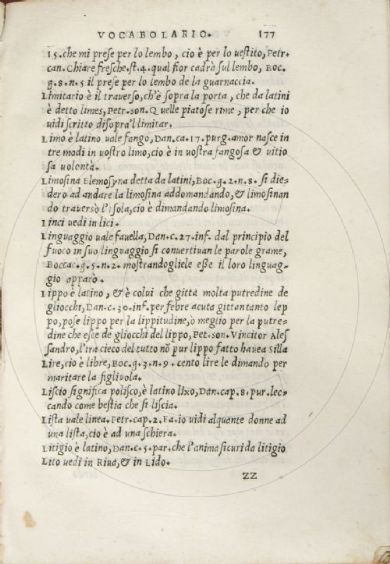 VOCABOLARIO. 177
15. che mi prese per lo lembo, cio è per lo uestito, Petr.
can. Chiare fresche. st. 4. qual fior cadea sul lembo, Boc.
g. 8. n. 5 il prese per lo lembo de la guarnaccia.
Limitario è il trauerso, ch'è sopra la porta, che da latini
è detto limes, Petr. son. Quelle piatose rime, per che io
uidi scritto disopra'l limitar.
Limo è latino uale fango, Dan. ca. 17. purg. amor nasce in
tre modi in uostro limo, cio è in uostra fangosa & uitio
sa uolontà.
Limosina Elemosyna detta da latini, Boc. g. 2. n. 8. si die-
dero ad andare la limosina addomandando, & limosinan
do trauerso l'isola, cio è dimandando limosina.
Linci uedi in lici.
Linguaggio uale fauella, Dan. c. 27. inf. dal principio del
fuoco in suo linguaggio si conuertiuan le parole grame,
Bocca. g. 5. n. 2. mostrandogliele esse il loro linguag-
gio apparò.
Lippo è latino, & è colui che gitta molta putredine de
gliocchi, Dan. c. 30. inf. per febre acuta gittan tanto lep
po, pose lippo per la lippitudine, o meglio per la putre-
dine che esce de gliocchi del lippo, Pet. son. Vincitor Ales
sandro, l'ira cieco del tutto nõ pur lippo fatto hauea Silla
Lire, cio è libre, Boc. g. 3. n. 9. cento lire le dimando per
maritare la figliuola.
Liscio significa polisco, è latino lixo, Dan. cap. 8. pur. lec-
cando come bestia che si liscia.
Lista uale linea. Petr. cap. 2. Fa. io uidi alquante donne ad
una lista, cio è ad una schiera.
Litigio è latino, Dan. c. 5. par. che l'anima sicuri da litigio
Lito uedi in Riua, & in Lido.
ZZ